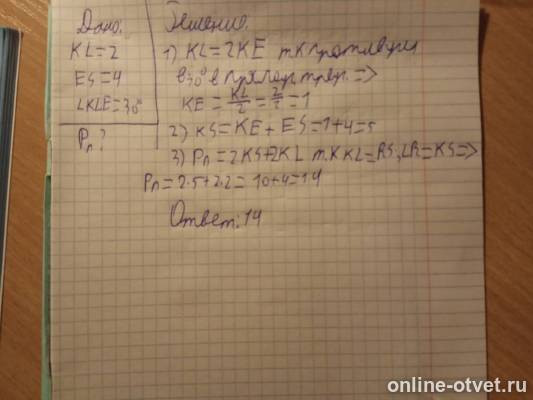 Дано:
KL=2
ES=4
∠KLE=30°
Pп?
Решение.
1) KL=2KE т.к против угла
в 30° в прямоуг треуг. =>
KE = KL/2 = 2/2 = 1
2) KS=KE+ES=1+4=5
3) Pп=2KS+2KL т.к KL=RS, LR=KS=>
Pп=2·5+2·2=10+4=14
Ответ: 14
online-otvet.ru